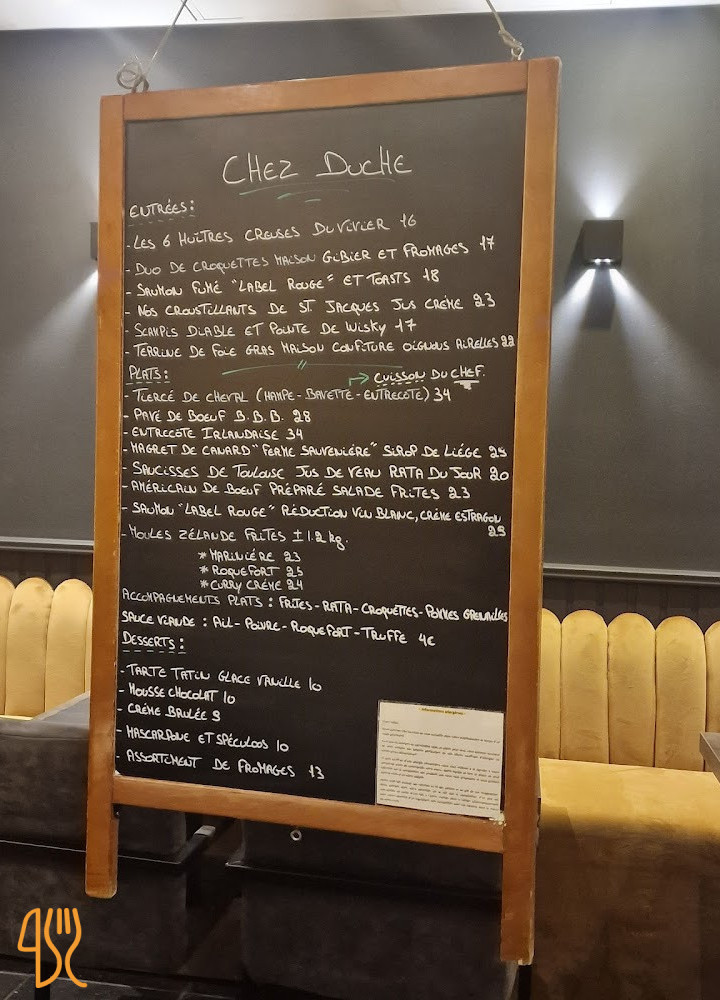 CHEZ DUCHE
ENTRÉES:
- LES 6 HUÎTRES CREUSES DU VIVIER 16
- DUO DE CROQUETTES MAISON GIBIER ET FROMAGES 17
- SAUMON FUMÉ "LABEL ROUGE" ET TOASTS 18
- NOS CROUSTILLANTS DE ST. JACQUES JUS CRÈME 23
- SCAMPIS DIABLE ET POINTE DE WISKY 17
- TERRINE DE FOIE GRAS MAISON CONFITURE OIGNONS AIRELLES 22
PLATS: → CUISSON DU CHEF.
- TIERCÉ DE CHEVAL (HAMPE - BAVETTE - ENTRECÔTE) 34
- PAVÉ DE BOEUF B.B.B. 28
- ENTRECÔTE IRLANDAISE 34
- MAGRET DE CANARD "FERME SAUVENIÈRE" SIROP DE LIÉGE 25
- SAUCISSES DE TOULOUSE JUS DE VEAU RATA DU JOUR 20
- AMÉRICAIN DE BOEUF PRÉPARÉ SALADE FRITES 23
- SAUMON "LABEL ROUGE" RÉDUCTION VIN BLANC, CRÈME ESTRAGON
25
- MOULES ZÉLANDE FRITES ± 1.2 kg.
* MARINIÈRE 23
* ROQUEFORT 25
* CURRY CRÈME 24
ACCOMPAGNEMENTS PLATS : FRITES - RATA - CROQUETTES - POMMES GRENAILLES
SAUCE VIANDE : AIL - POIVRE - ROQUEFORT - TRUFFE 4€
DESSERTS:
- TARTE TATIN GLACE VANILLE 10
- MOUSSE CHOCOLAT 10
- CRÈME BRULÉE 9
- MASCARPONE ET SPÉCULOOS 10
- ASSORTIMENT DE FROMAGES 13